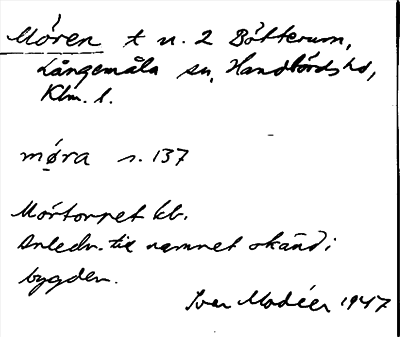 Mören t n. 2 Bötterum,
Långemåla sn, Handbörds hd,
Klm. l.
møra s. 137
Mörtorpet kb.
Anledn. till namnet okänd i
bygden.
Ivar Modéer 1947